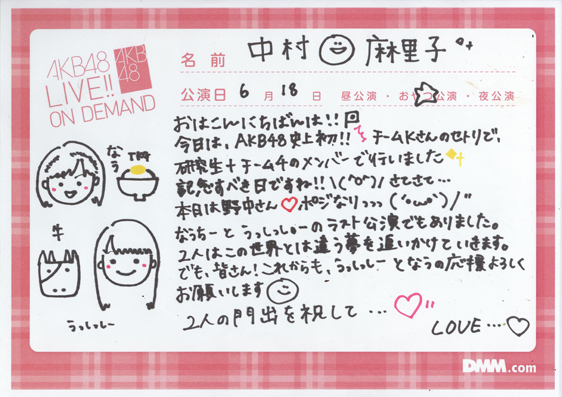 AKB48
LIVE!!
ON DEMAND
AKB
48
名前 中村 麻里子
公演日 6月 18日 昼公演・おやつ公演・夜公演
おはこんにちばんは!!
今日は、AKB48史上初!! チームKさんのセトリで、
研究生+チーム4のメンバーで行いました
記念すべき日ですね!! \(^o^)/ さてさて…
本日は野中さん♡ポジなりっっっ (´・ω・`)/"
なうちーとうっしっしーのラスト公演でもありました。
2人はこの世界とは違う夢を追いかけていきます。
でも、皆さん!これからも、うっしっしーとなうの応援よろしく
お願いします
2人の門出を祝して…♡"
LOVE…♡
なう
牛
うっしっしー
DMM.com